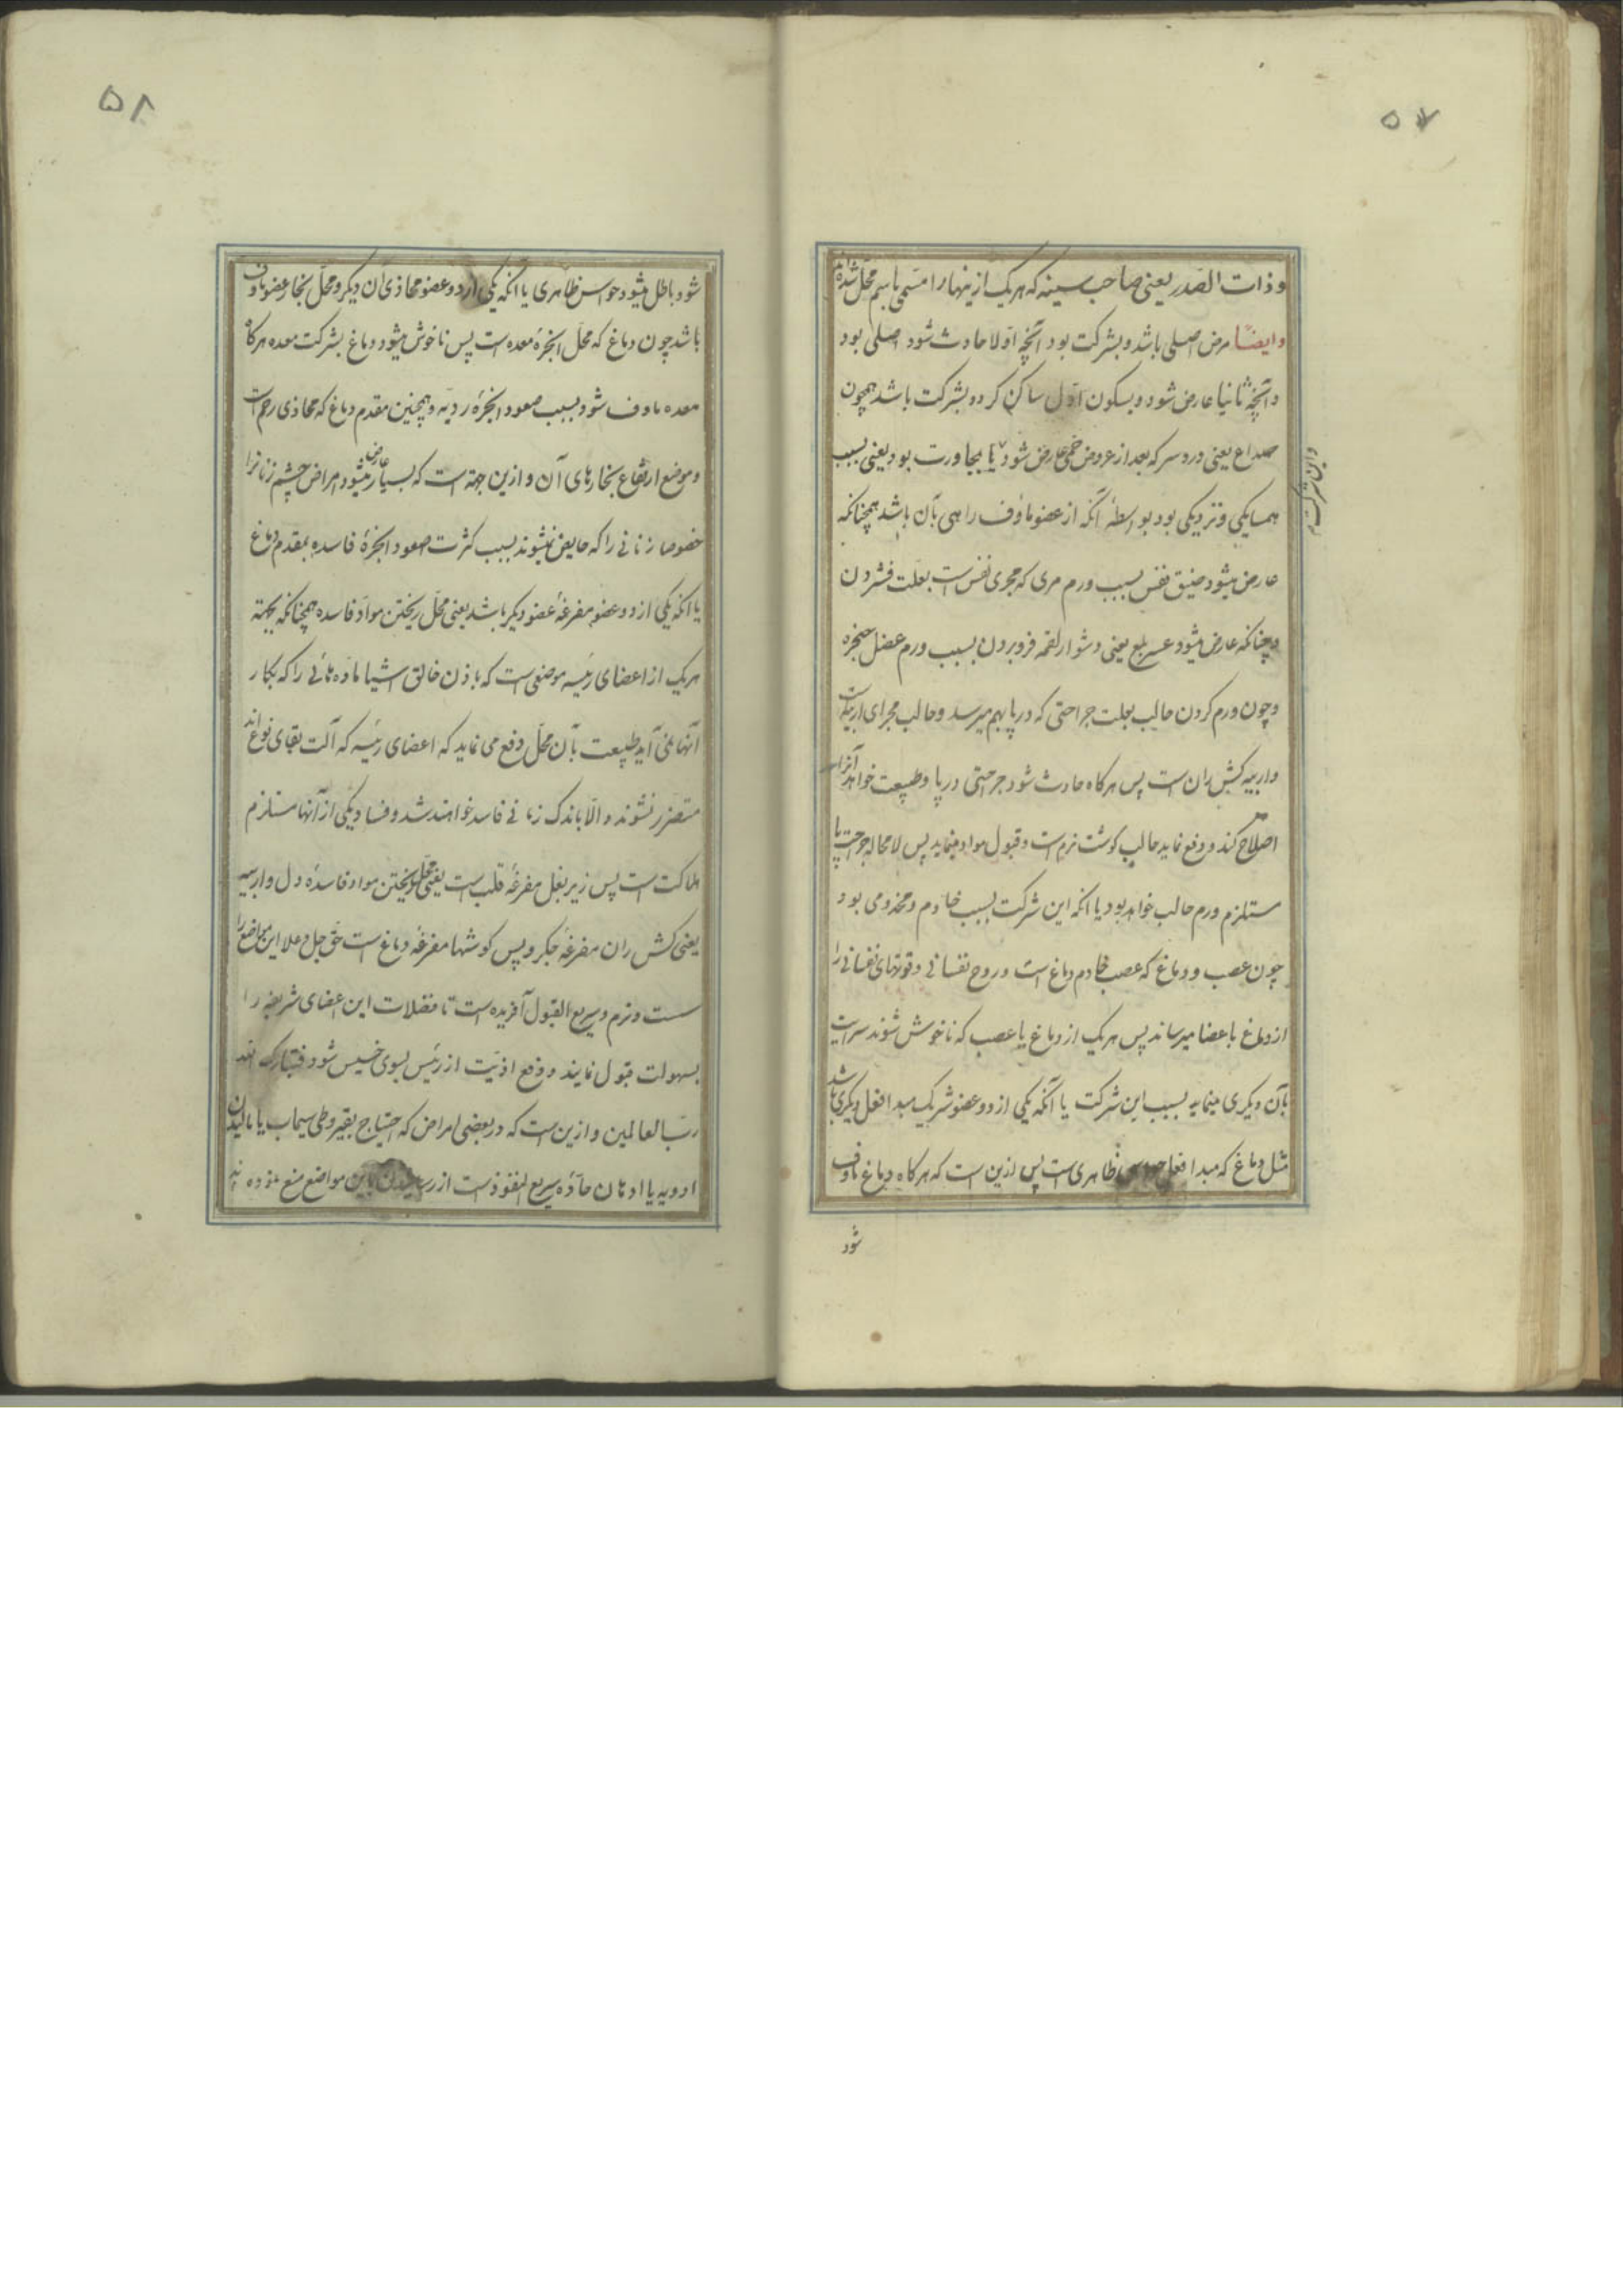 ۵۷
وذات الصدر یعنی صاحب سینه که هریک ازینها را مسمی باسم محل شده‌اند
وایضا مرض اصلی باشد و بشرکت بود آنچه اولا حادث شود اصلی بود
و آنچه ثانیا عارض شود و بسکون اول ساکن کردد بشرکت باشد همچون
صداع یعنی درد سر که بعد از عروض حمی عارض شود یا بمجاورت بود یعنی بسبب
و این شرکت
همسایکی و نزدیکی بود بواسطهٔ آنکه از عضو ماؤف راهی بآن باشد همچنانکه
عارض میشود ضیق نفس بسبب ورم مری که مجری نفس است بعلت فشردن
و چنانکه عارض میشود عسر بلع یعنی دشوار لقمه فرو بردن بسبب ورم عضل حنجره
و چون ورم کردن حالب بعلت جراحتی که در پا بهم میرسد و حالب مجرای اربیه است
و اربیه کش ران است پس هرکاه حادث شود جرحتی در پا و طبیعت خواهد آنرا
اصلاح کند و دفع نماید حالب کوشت نرم است و قبول مواد مینماید پس لامحاله جراحت پا
مستلزم ورم حالب خواهد بود یا انکه این شرکت بسبب خادم و مخدومی بود
چون عصب و دماغ که عصب خادم دماغ است و روح نفسانی و قوتهای نفسانی را
از دماغ باعضا میرساند پس هریک از دماغ یا عصب که ناخوش شوند سرایت
بآن دیکری مینماید بسبب این شرکت یا آنکه یکی از دو عضو شریک مبدا فعل دیکری باشد
مثل دماغ که مبدا فعل حواس ظاهری است پس ازین است که هرکاه دماغ ماؤف
شود
۵۸
شود باطل میشود حواس ظاهری یا آنکه یکی از دو عضو محاذی آن دیکر و محل بخار عضو ماؤف
باشد چون دماغ که محل ابخرهٔ معده است پس ناخوش میشود دماغ بشرکت معده هرکاه
معده ماوف شود بسبب صعود ابخرهٔ ردیه و همچنین مقدم دماغ که محاذی رحم است
و موضع ارتفاع بخارهای آن و ازین جهته است که بسیار عارض میشود امراض چشم زنانرا
خصوصا زنانی را که حایض نمیشوند بسبب کثرت صعود ابخرهٔ فاسده بمقدم دماغ
یا انکه یکی از دو عضو مفرغهٔ عضو دیکر باشد یعنی محل ریختن مواد فاسده همچنانکه بجهته
هریک از اعضای رئیسه موضعی است که باذن خالق اشیا ماده هائی را که بکار
آنها نمی آید طبیعت بآن محل دفع می نماید که اعضای رئیسه که آلت بقای نوع‌اند
متضرر نشوند و الا باندک زمانی فاسد خواهند شد و فساد یکی از آنها مستلزم
هلاکت است پس زیر بغل مفرغهٔ قلب است یعنی محل ریختن مواد فاسدهٔ دل و اربیه
یعنی کش ران مفرغهٔ جکر و پس کوشها مفرغهٔ دماغ است حق جل و علا این مواضع را
سست و نرم و سریع القبول آفریده است تا فضلات این اعضای شریفه را
بسهولت قبول نمایند و دفع اذیت از رئیس بسوی خسیس شود فتبارک الله
رب العالمین و ازین است که در بعضی امراض که احتیاج بقیروطی سیماب یا مالیدن
ادویه یا ادهان حاده سریع النفوذ است از رسانیدن باین مواضع منع نموده